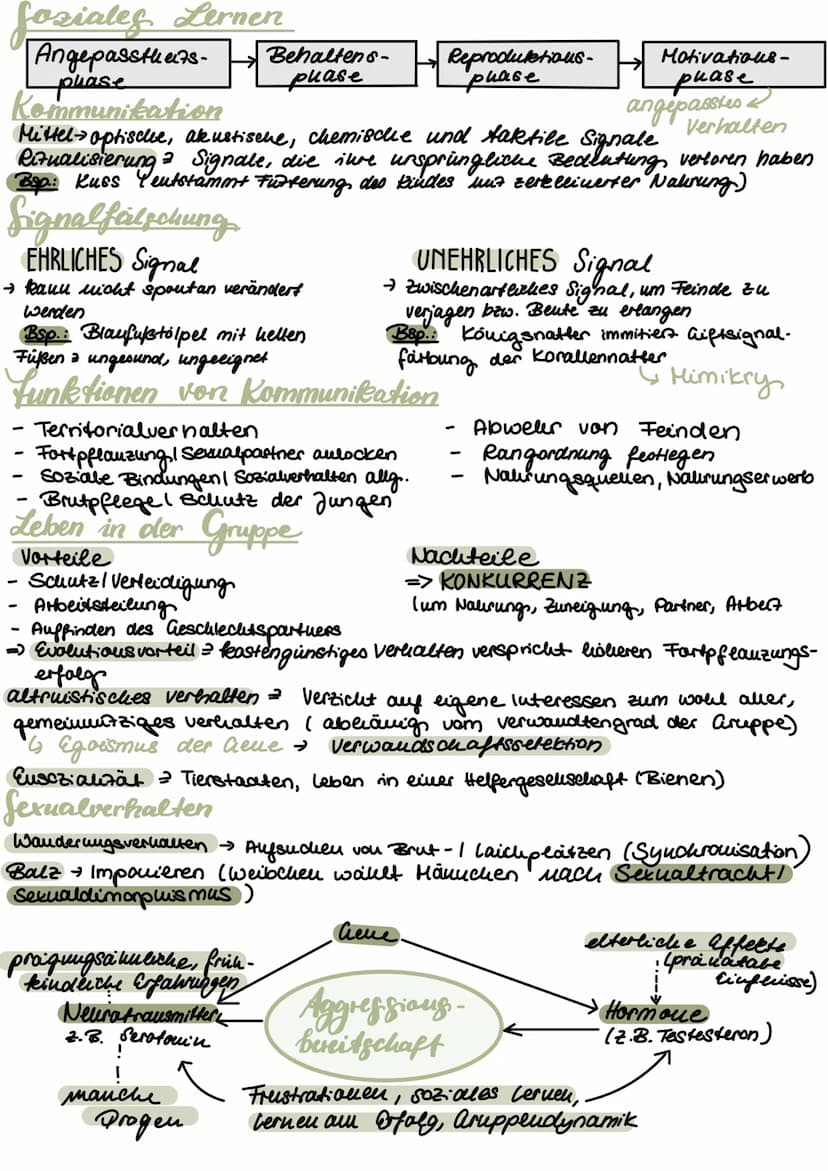 Soziales Lernen
Angepasstheits-
phase
Behaltens-
phase
Reproduktions-
phase
Motivations-
phase
angepasstes
Verhalten
Kommunikation
Mittel → optische, akustische, chemische und taktile Signale
Ritualisierung ≙ Signale, die ihre ursprüngliche Bedeutung verloren haben
Bsp.: Kuss (entstammt Fütterung des Kindes mit zerkleinerter Nahrung)
Signalfälschung
EHRLICHES Signal
→ kann nicht spontan verändert
werden
Bsp.: Blaufußtölpel mit hellen
Füßen ≙ ungesund, ungeeignet
UNEHRLICHES Signal
→ zwischenartliches Signal, um Feinde zu
verjagen bzw. Beute zu erlangen
Bsp.: Königsnatter immitiert Giftsignal-
färbung der Korallennatter
↳ Mimikry
Funktionen von Kommunikation
- Territorialverhalten
- Fortpflanzung/Sexualpartner anlocken
- Soziale Bindungen/Sozialverhalten allg.
- Brutpflege/Schutz der Jungen
- Abwehr von Feinden
- Rangordnung festlegen
- Nahrungsquellen, Nahrungserwerb
Leben in der Gruppe
Vorteile
- Schutz/Verteidigung
- Arbeitsteilung
- Auffinden des Geschlechtspartners
Nachteile
=> KONKURRENZ
(um Nahrung, Zuneigung, Partner, Arbeit
=> Evolutionsvorteil ≙ kostengünstiges Verhalten verspricht höheren Fortpflanzungs-
erfolg
altruistisches verhalten ≙ Verzicht auf eigene Interessen zum wohl aller,
gemeinnütziges verhalten (abhängig vom verwandtengrad der Gruppe)
↳ Egoismus der Gene → verwandschaftsselektion
Eusozialität ≙ Tierstaaten, Leben in einer Helfergesellschaft (Bienen)
Sexualverhalten
Wanderungsverhalten → Aufsuchen von Brut-/Laichplätzen (Synchronisation)
Balz → Imponieren (Weibchen wählt Männchen nach Sexualtracht/
Sexualdimorphismus)
Gene
prägungsähnliche, früh-
kindliche Erfahrungen
Neurotransmitter
z.B. Serotonin
manche
Drogen
Aggressions-
bereitschaft
elterliche Affekte
(pränatale
Einflüsse)
Hormone
(z.B. Testesteron)
Frustrationen, soziales Lernen,
Lernen am Erfolg, Gruppendynamik